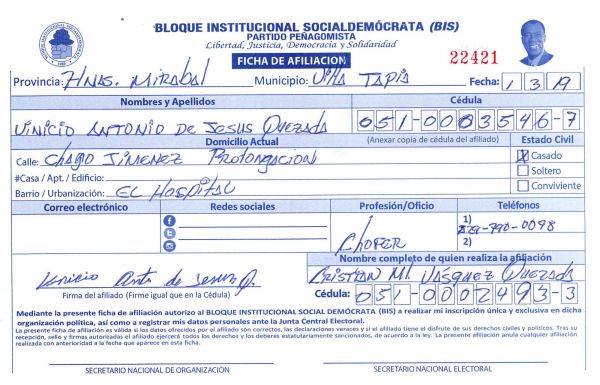 BLOQUE INSTITUCIONAL SOCIALDEMÓCRATA (BIS)
PARTIDO PEÑAGOMISTA
Libertad, Justicia, Democracia y Solidaridad
FICHA DE AFILIACION
22421
Provincia: Hnas. Mirabal Municipio: Villa Tapia Fecha: 1 3 19
Nombres y Apellidos Cédula
Vinicio Antonio De Jesus Quezada 051-0003546-7
Domicilio Actual (Anexar copia de cédula del afiliado) Estado Civil
Calle: Chago Jimenez Prolongacion X Casado
#Casa / Apt. / Edificio: Soltero
Barrio / Urbanización: El Hospital Conviviente
Correo electrónico Redes sociales Profesión/Oficio Teléfonos
1) 829-790-0098
Chofer 2)
Nombre completo de quien realiza la afiliación
Vinicio Ant. de Jesus Q. Cristian Ml. Vasquez Quezada
Firma del afiliado (Firme igual que en la Cédula) Cédula: 051-0002493-3
Mediante la presente ficha de afiliación autorizo al BLOQUE INSTITUCIONAL SOCIAL DEMÓCRATA (BIS) a realizar mi inscripción única y exclusiva en dicha
organización política, así como a registrar mis datos personales ante la Junta Central Electoral.
La presente ficha de afiliación es válida si los datos ofrecidos por el afiliado son correctos, las declaraciones veraces y si el afiliado tiene el disfrute de sus derechos civiles y políticos. Tras su
recepción, sello y firmas autorizadas el afiliado ejercerá todos los derechos y los deberes estatutariamente sancionados, de acuerdo a la ley. La presente afiliación anula cualquier afiliación
realizada con anterioridad a la fecha que aparece en esta ficha.
SECRETARIO NACIONAL DE ORGANIZACIÓN SECRETARIO NACIONAL ELECTORAL